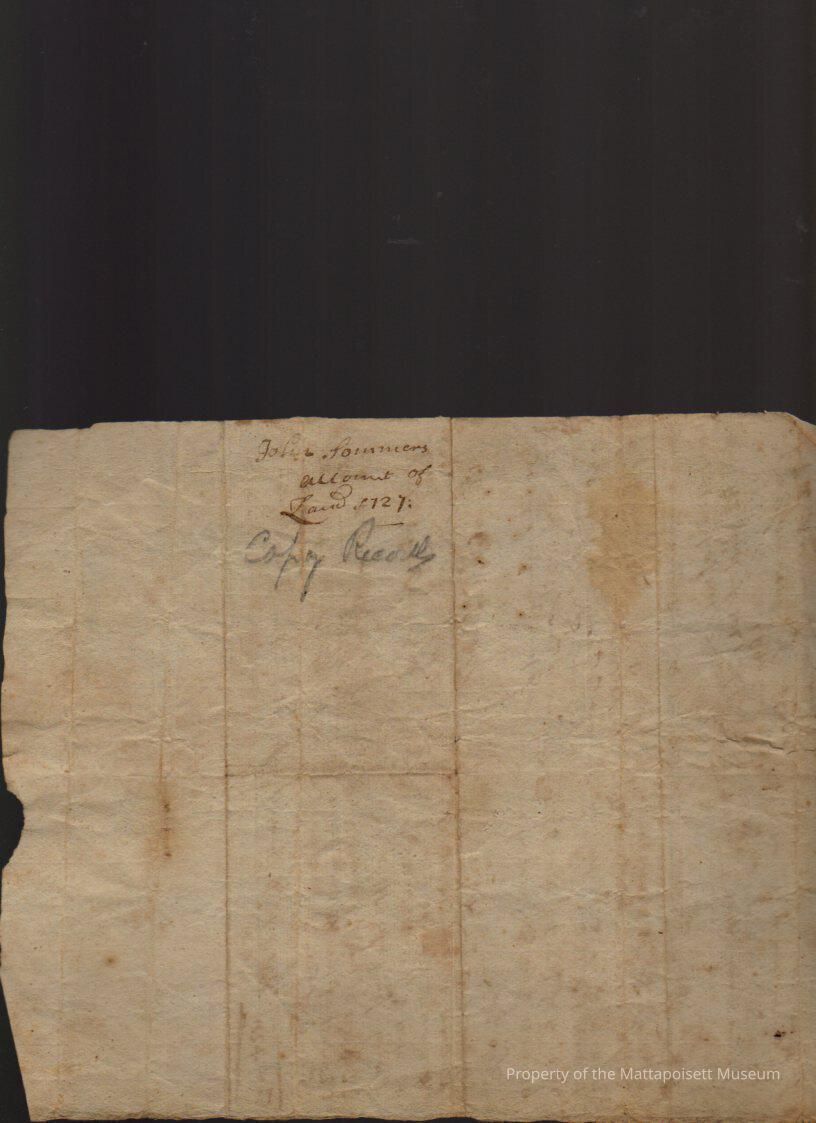 John Sommers
account of
Land 1727:
Copy Records
Property of the Mattapoisett Museum